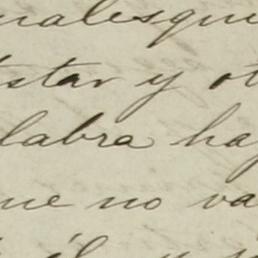 nalesqui
star y ot
labra hay
ue no va